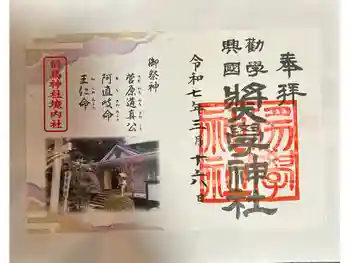 奉拝
勸學
興國
奬學神社
令和七年三月十六日
御祭神
菅原道真公
阿直岐命
王仁命
前鳥神社境内社